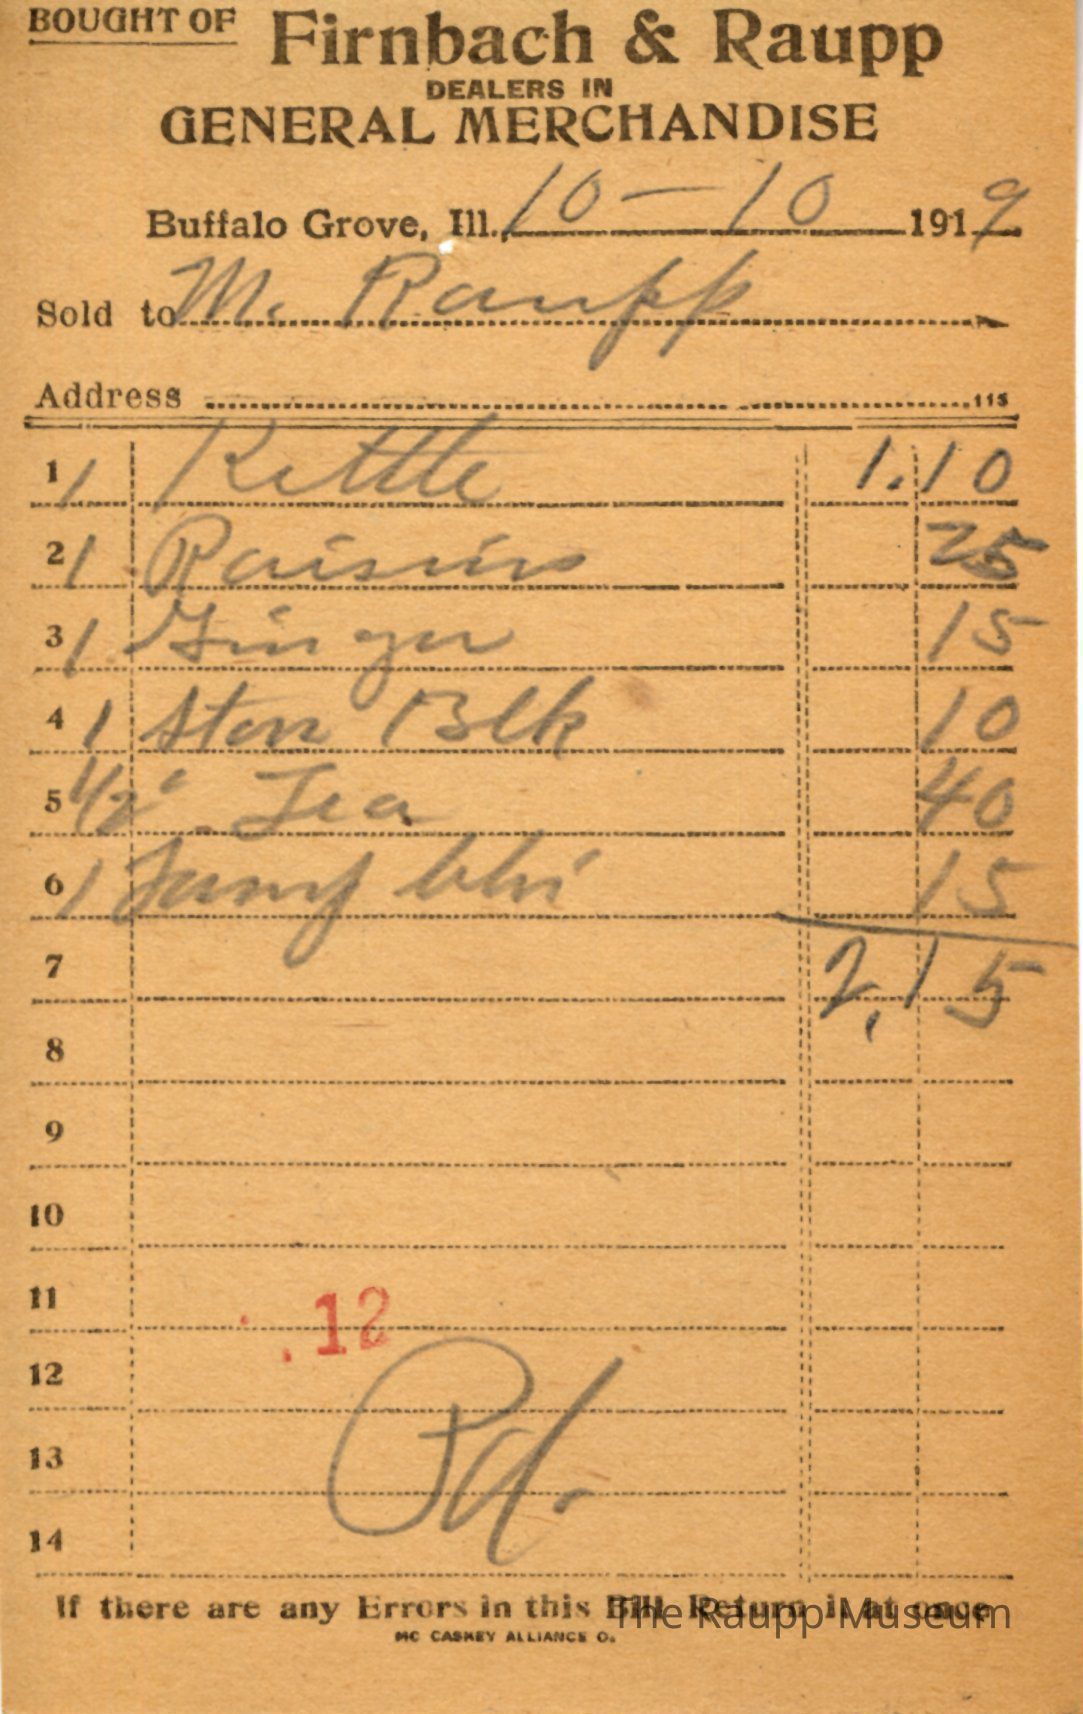 BOUGHT OF Firnbach & Raupp
DEALERS IN
GENERAL MERCHANDISE
Buffalo Grove, Ill., 10-10 1919
Sold to M. Raupp
Address 115
1 1 Kettle 1.10
2 1 Raisins 25
3 1 Ginger 15
4 1 Blk 10
5 1/2 Tea 40
6 1 15
7 2.15
8
9
10
11
.12
12
13
Pd.
14
If there are any Errors in this Bill Return it at once
The Raupp Museum
MC CASKEY ALLIANCE O.